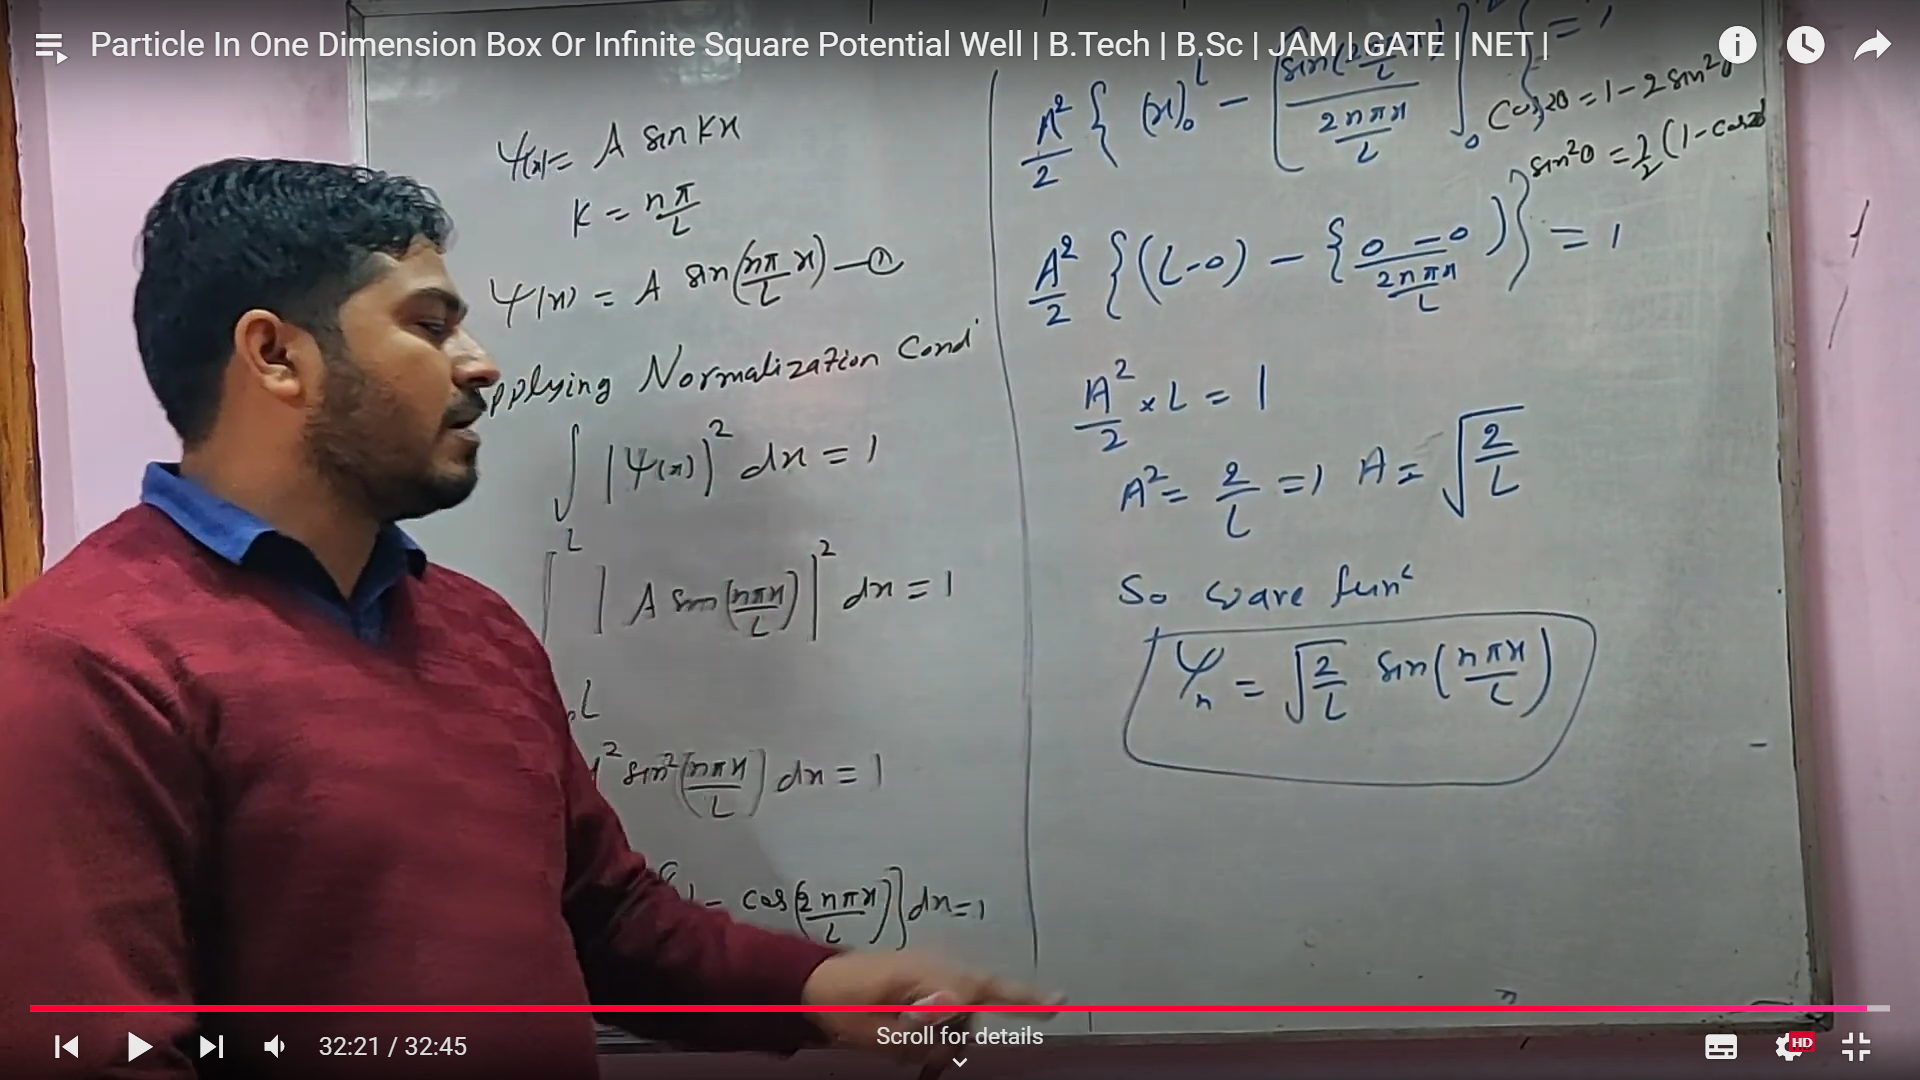 Particle In One Dimension Box Or Infinite Square Potential Well | B.Tech | B.Sc | JAM | GATE | NET |
ψ(x) = A sin Kx
K = nπ/L
ψ(x) = A sin(nπ/L x) — ①
pplying Normalization Cond
∫ |ψ(x)|² dx = 1
∫ᴸ |A sin(nπx/L)|² dx = 1
L
² sin²(nπx/L) dx = 1
- cos(2nπx/L)} dx = 1
A²/2 { (x)₀ᴸ - [sin(2nπx/L) / (2nπx/L)]₀ } = 1
Cos2θ = 1 - 2 sin²θ
sin²θ = 1/2 (1 - cos2θ
A²/2 {(L-0) - {(0 - 0)/(2nπx/L))} = 1
A²/2 × L = 1
A² = 2/L ⇒ A = √(2/L)
So wave funᶜ
ψₙ = √(2/L) sin(nπx/L)
32:21 / 32:45
Scroll for details
HD